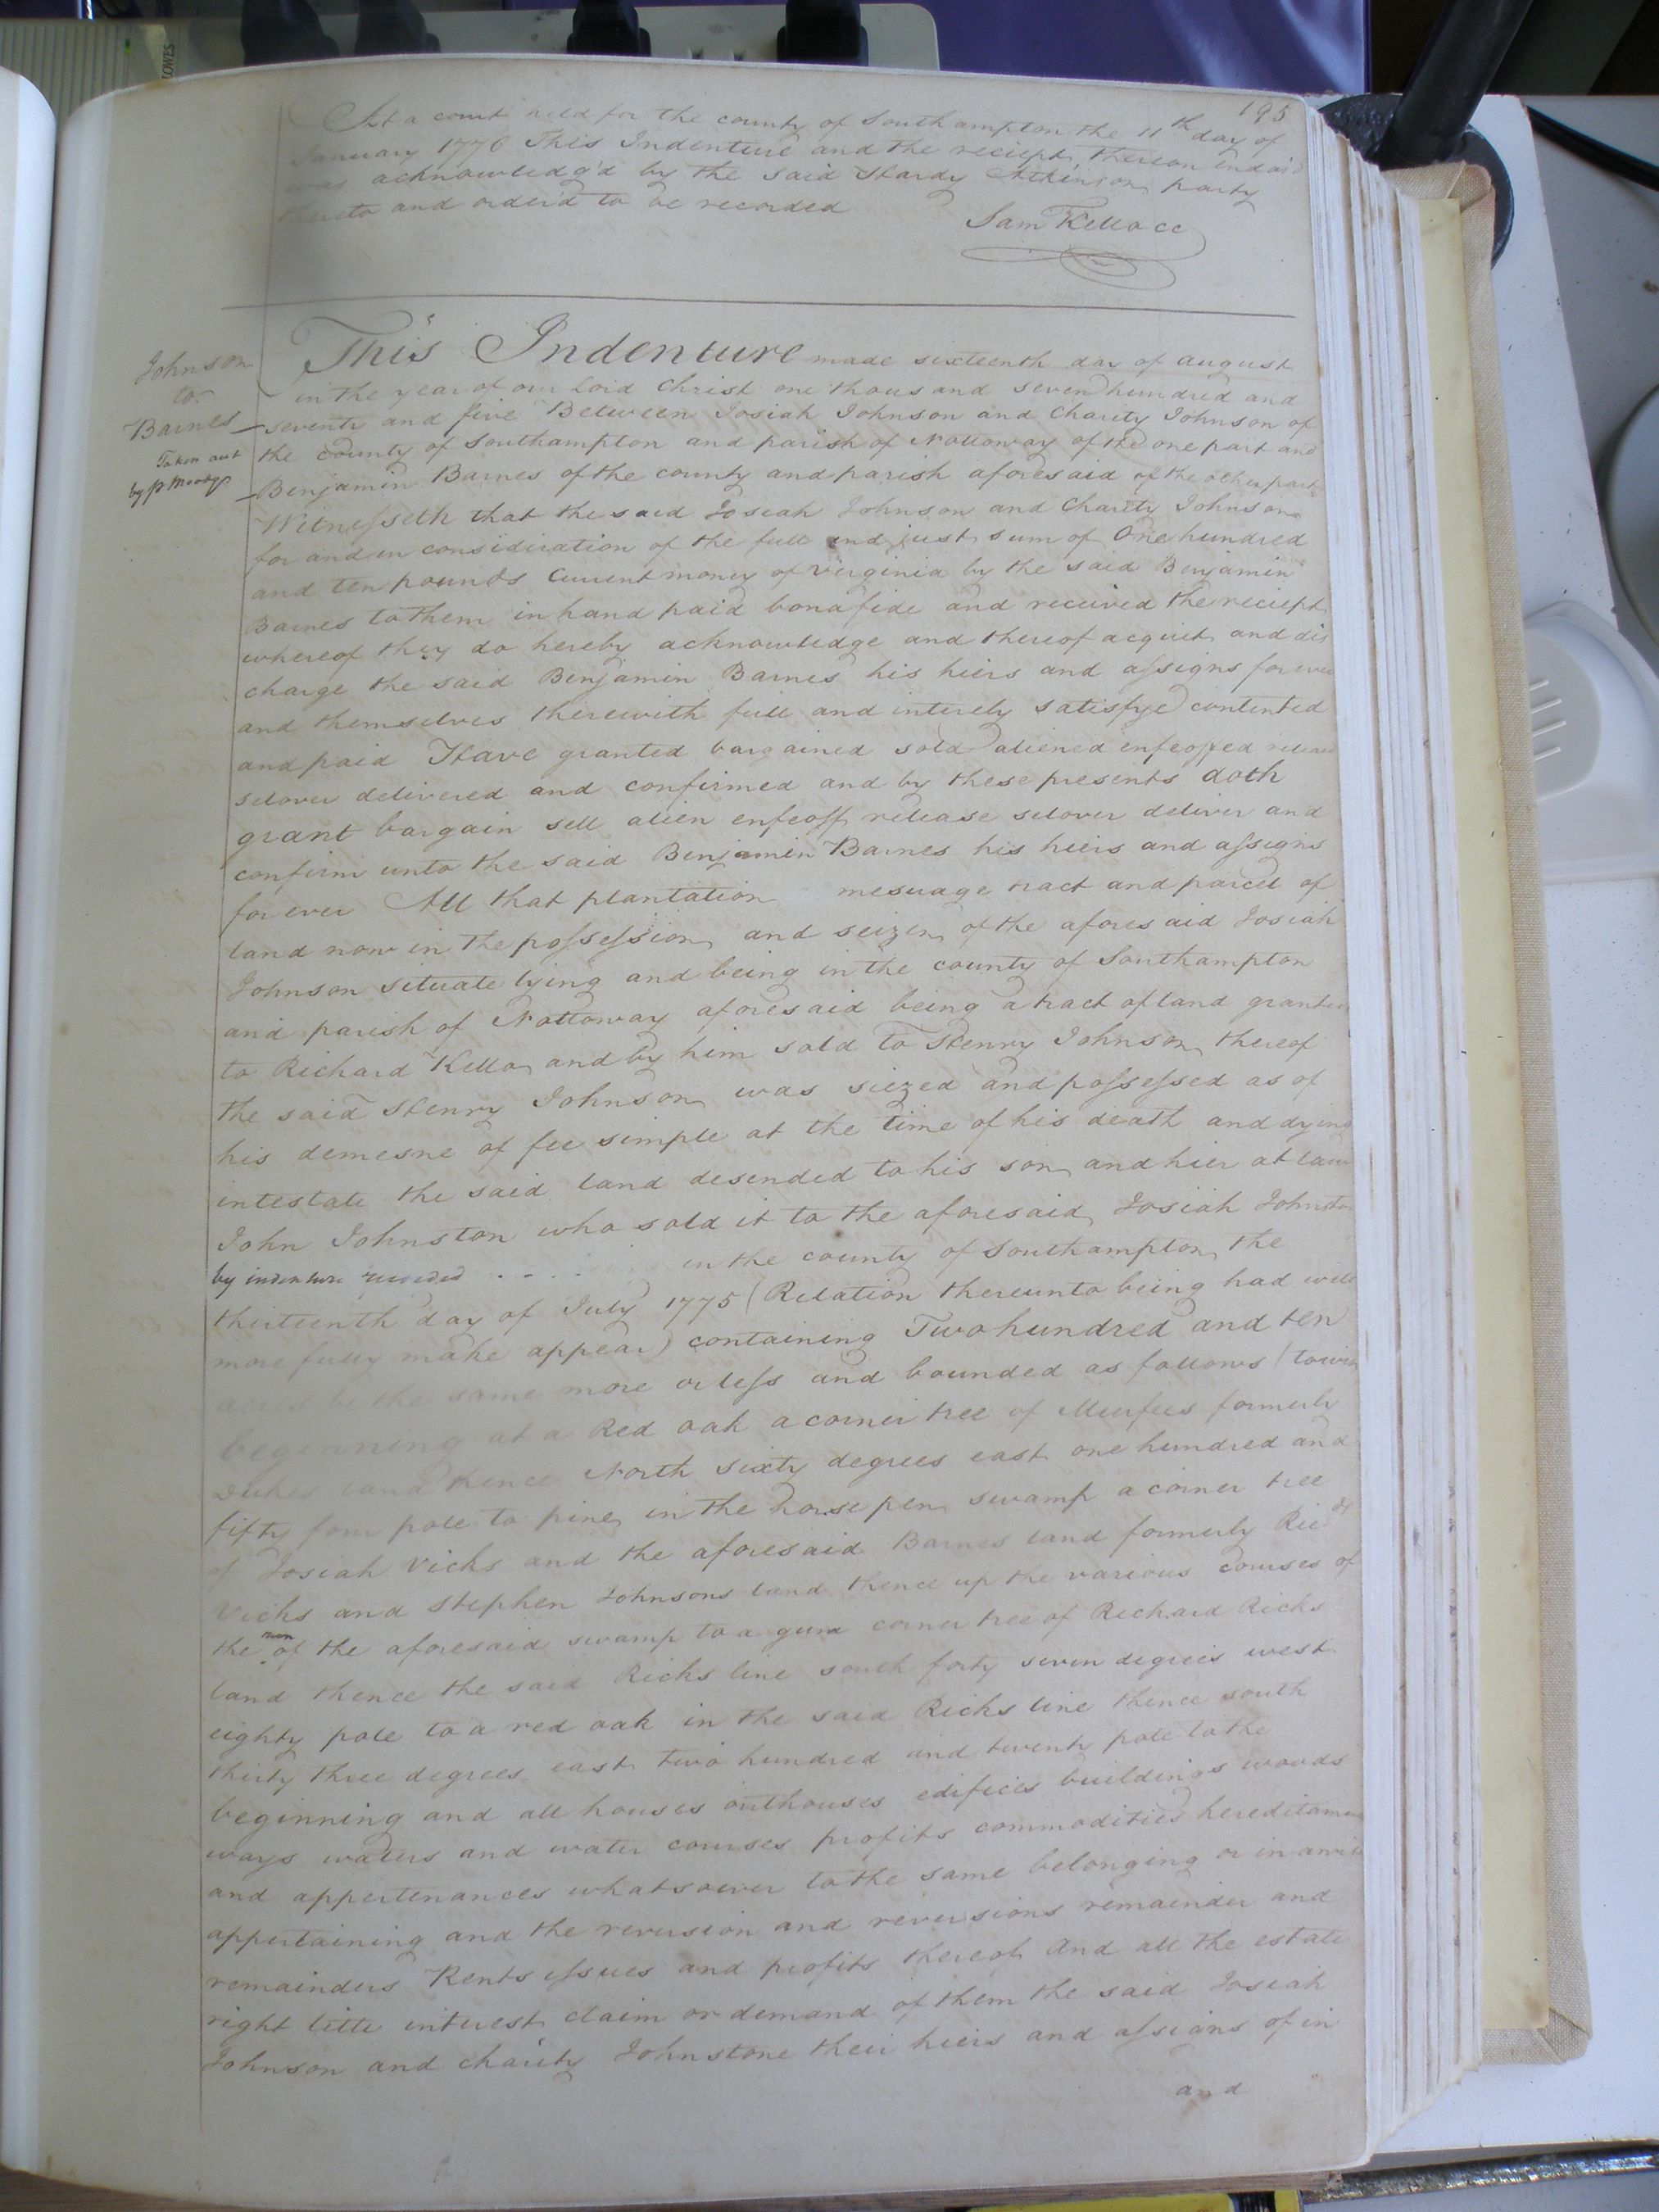 195
At a court held for the county of Southampton the 11th day of
January 1776 This Indenture and the reciept thereon endors'd
was acknowledg'd by the said Hardy Atkinson party
thereto and orderd to be recorded
Sam Kello CC
Johnson
to
Barnes
Taken out
by p Moody
This Indenture made sixteenth day of august
in the year of our Lord Christ one thousand seven hundred and
seventy and five Between Josiah Johnson and Charity Johnson of
the county of Southampton and parish of Nottoway of the one part and
Benjamin Barnes of the county and parish aforesaid of the other part
Witnesseth that the said Josiah Johnson and Charity Johnson
for and in consideration of the full and just sum of One hundred
and ten pounds Current money of Virginia by the said Benjamin
Barnes to them in hand paid bonafide and received the reciept
whereof they do hereby acknowledge and thereof acquit and dis
charge the said Benjamin Barnes his heirs and assigns forever
and themselves therewith full and intirely satisfye contented
and paid Have granted bargained sold aliened enfeoffed releas
setover delivered and confirmed and by these presents doth
grant bargain sell alien enfeoff release setover deliver and
confirm unto the said Benjamin Barnes his heirs and assigns
for ever All that plantation mesuage tract and parcel of
land now in the possession and seizen of the aforesaid Josiah
Johnson situate lying and being in the county of Southampton
and parish of Nottoway aforesaid being a tract of land granted
to Richard Kello and by him sold to Henry Johnson thereof
the said Henry Johnson was siezed and possessed as of
his demesne of fee simple at the time of his death and dying
intestate the said land desended to his son and hier at law
John Johnston who sold it to the aforesaid Josiah Johnston
by indenture recorded . . . . in the county of Southampton the
thirteenth day of July 1775 (Relation thereunto being had will
more fully make appear) containing Two hundred and ten
acres be the same more or less and bounded as follows (towit
beginning at a Red oak a corner tree of Murfees formerly
Dukes land thence North sixty degrees east one hundred and
fifty four pole to pine in the horse pen swamp a corner tree
of Josiah Vicks and the aforesaid Barnes land formerly Ricd
Vicks and Stephen Johnsons land thence up the various courses of
the run of the aforesaid swamp to a gum corner tree of Richard Ricks
land thence the said Ricks line south forty seven degrees west
eighty pole to a red oak in the said Ricks line thence south
thirty three degrees east two hundred and twenty pole to the
beginning and all houses outhouses edifices buildings woods
ways waters and water courses profits commodities hereditamen
and appertenances whatsoever to the same belonging or in any wise
appertaining and the reversion and reversions remainder and
remainders Rents issues and profits thereof And all the estate
right title interest claim or demand of them the said Josiah
Johnson and charity Johnstone their heirs and assigns of in
and